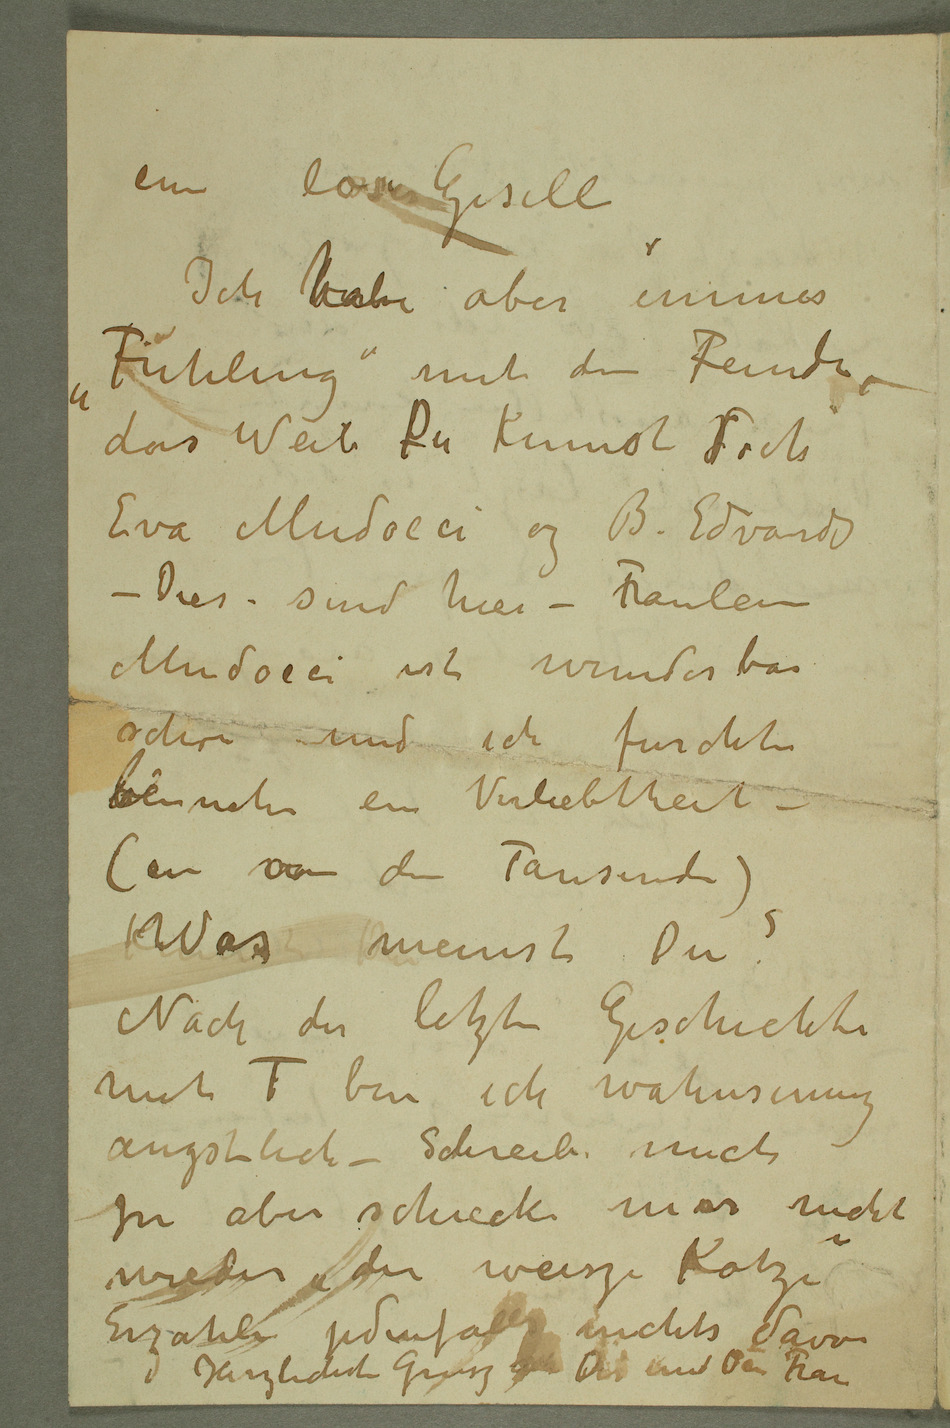 ein loser Gesell
Ich habe aber immer
„Fühling" mit dem Feinde,
das Weib Du Kennst Doch
Eva Mudocci og B. Edvards
– Dies. sind hier – Fraulein
Mudocci ist wunderbar
schön und ich furchte
beinahe ein Verliebtheit –
(ein von den Tausende)
Was meinst Du?
Nach der letzte Geschichte
mit T bin ich wahnsinnig
angstlich – Schreib mich
zu aber schicke mir nicht
wieder „die weisze Katze"
Erzahle jedenfalls nichts davon
Herzlichste Grusz Dir und Dein Frau